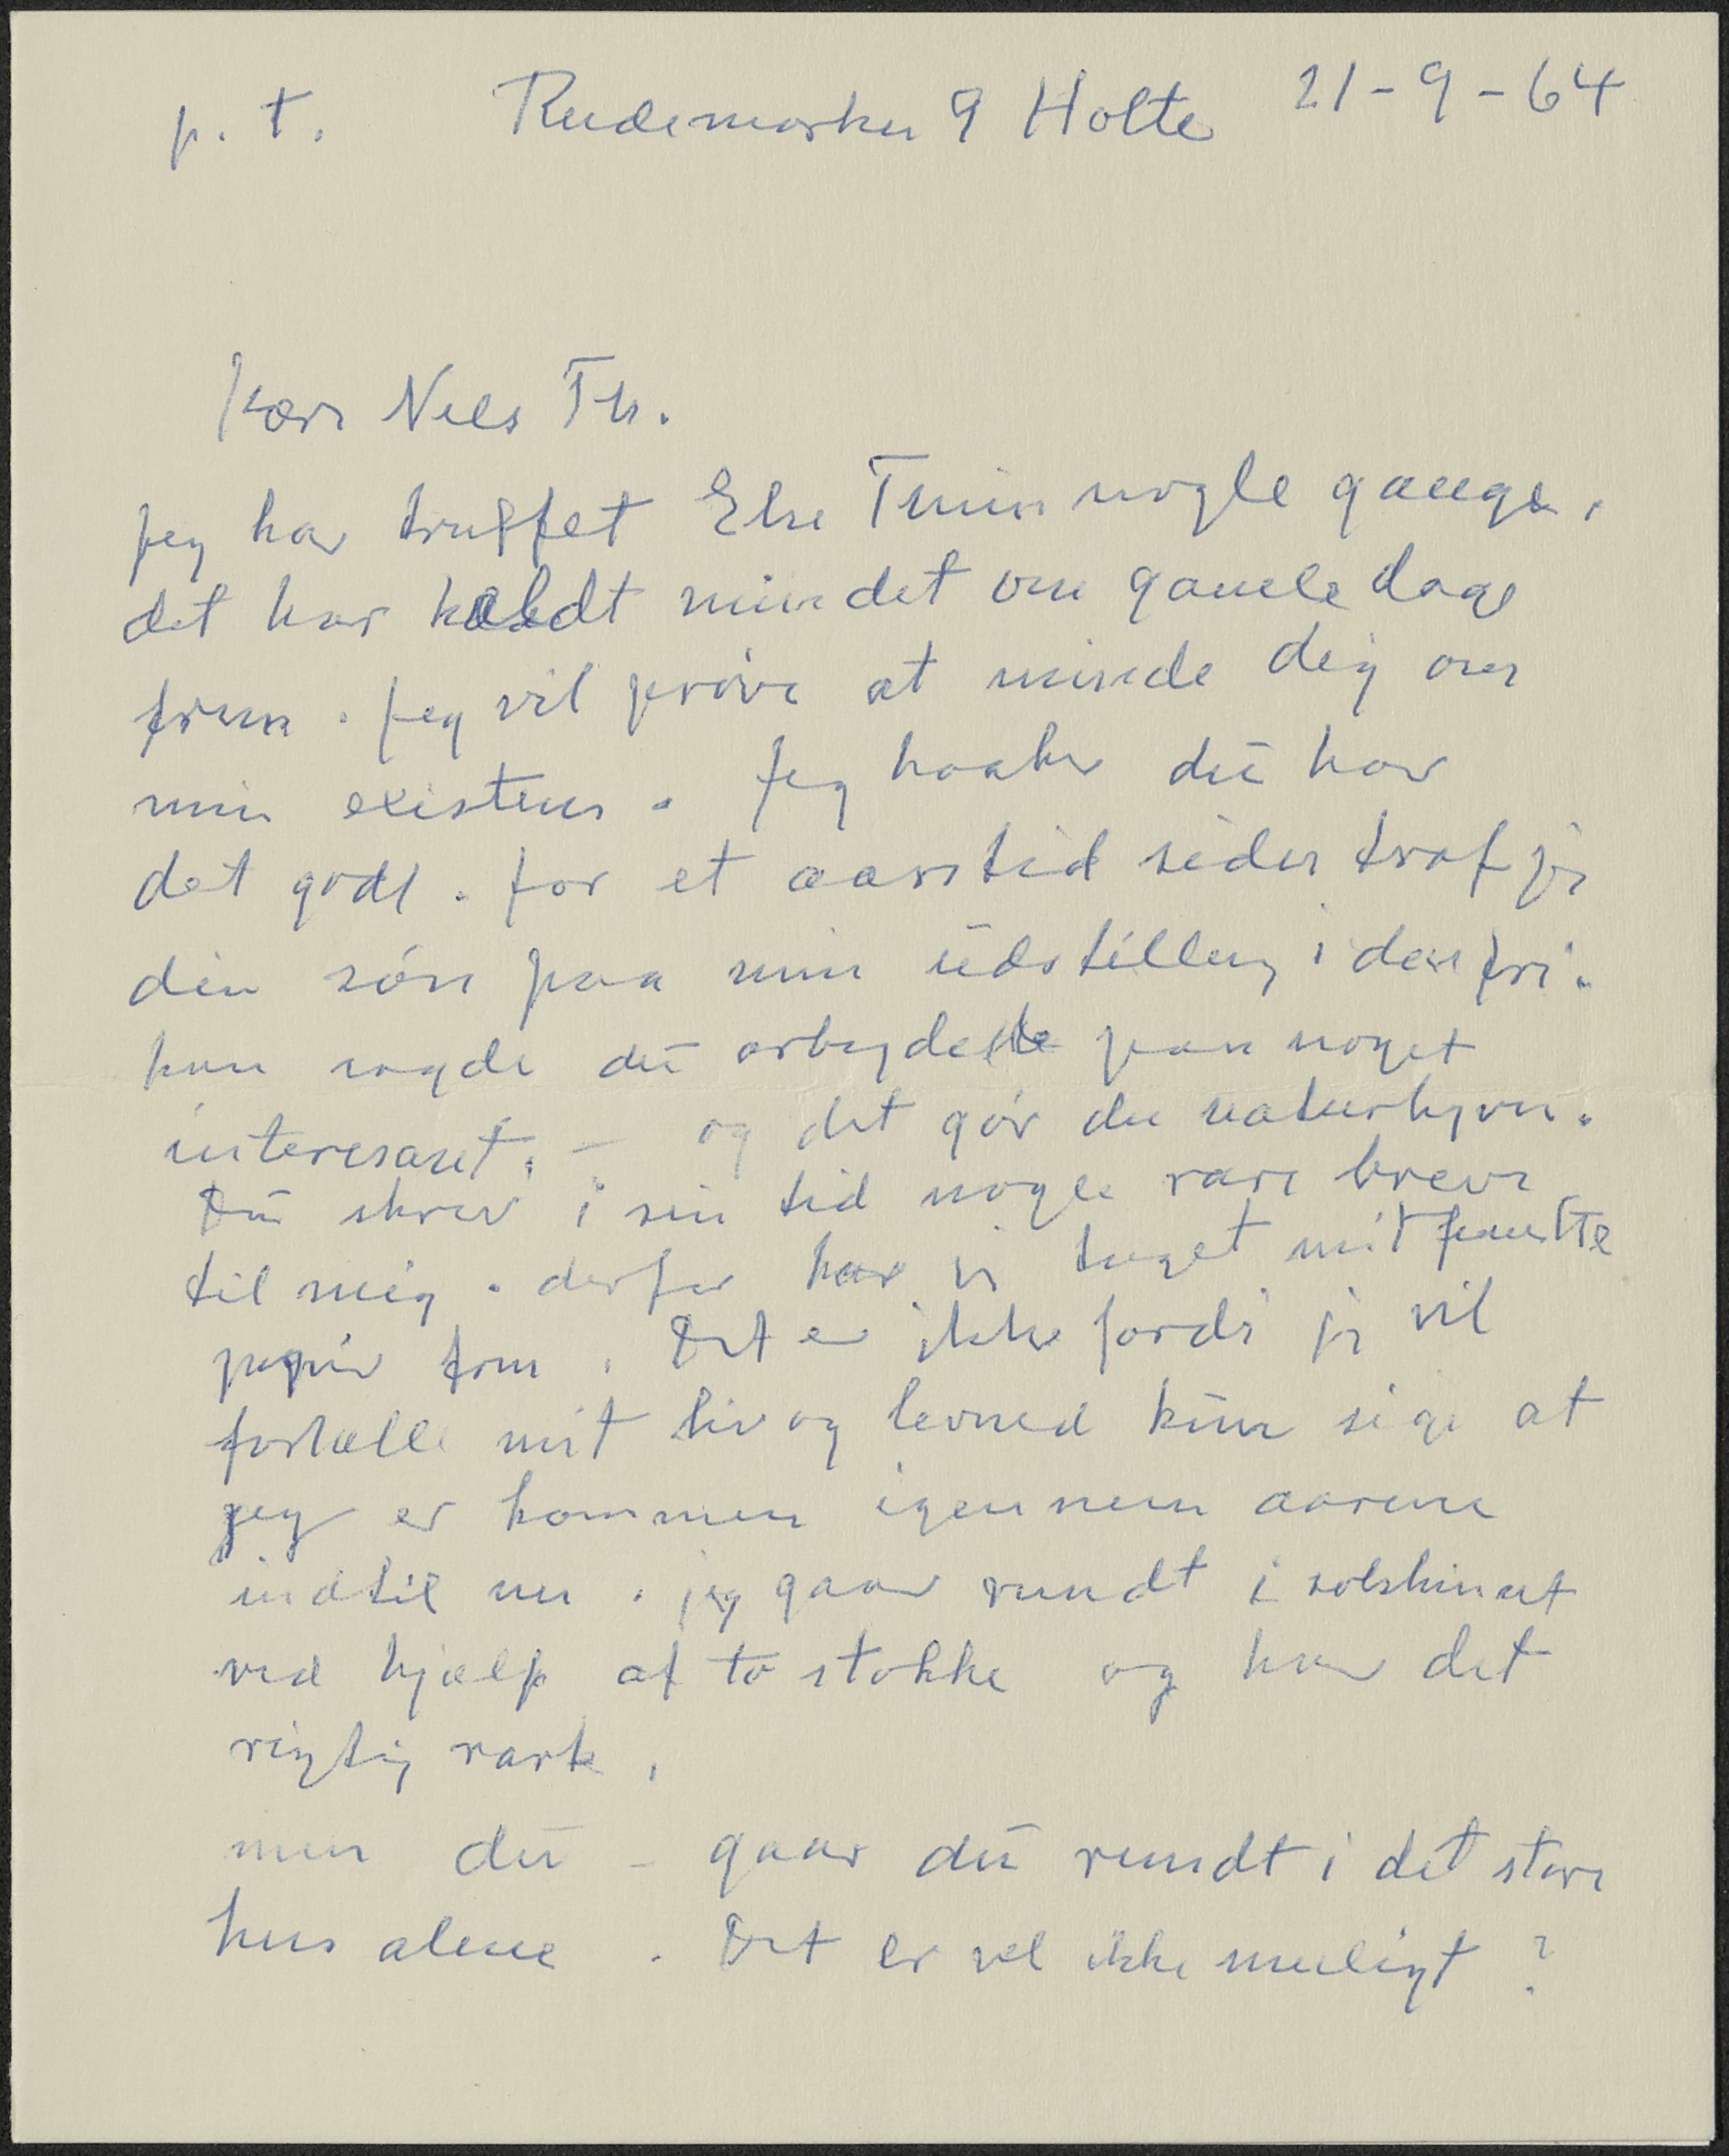 p. t. Rudemarken 9 Holte 21-9-64
Kære Niels Th.
Jeg har truffet Else nogle gange,
det har kaldt mindet om gamle dage
frem. Jeg vil prøve at minde dig om
min existens. Jeg haaber du har
det godt. for et aarstid siden traf jeg
din søn paa min udstilling i den fri.
han sagde du arbejdede paa noget
interesant, – og det gør du naturligvis.
Du skrev i sin tid nogle rare breve
til mig. derfor har jeg taget mit
papir frem. Det er ikke fordi jeg vil
fortælle mit liv og levned kun sige at
jeg er kommen igennem aarene
indtil nu. jeg gaar rundt i solskinnet
ved hjælp af to stokke og har det
rigtig rart.
men du – gaar du rundt i det store
hus alene. Det er vel ikke muligt?